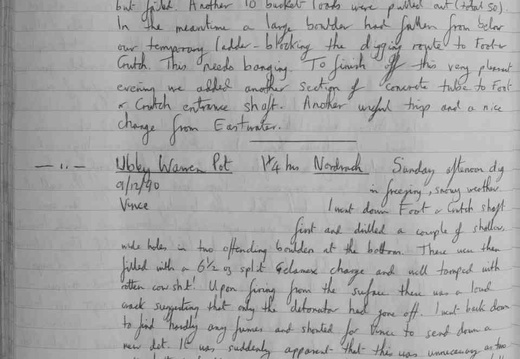 but failed. Another 10 bucket loads were pulled out (total 50).
In the meantime a large boulder had fallen from below
our temporary ladder - blocking the digging route to Foot &
Crutch. This needs banging. To finish off this very pleasant
evening we added another section of concrete tube to Foot
& Crutch entrance shaft. Another useful trip and a nice
change from Eastwater.
Ubley Warren Pot 1¾ hrs Nordrach Sunday afternoon dig
9/12/90 in freezing, snowy weather.
Vince I went down Foot & Crutch shaft
first and drilled a couple of shallow
wide holes in two offending boulders at the bottom. These were then
filled with a 6½ oz split Gelamex charge and well tamped with
rotten cow shit! Upon firing from the surface there was a loud
crack suggesting that only the detonator had gone off. I went back down
to find hardly any fumes and shouted for Vince to send down a
new det. It was suddenly apparent that this was unnecessary as two